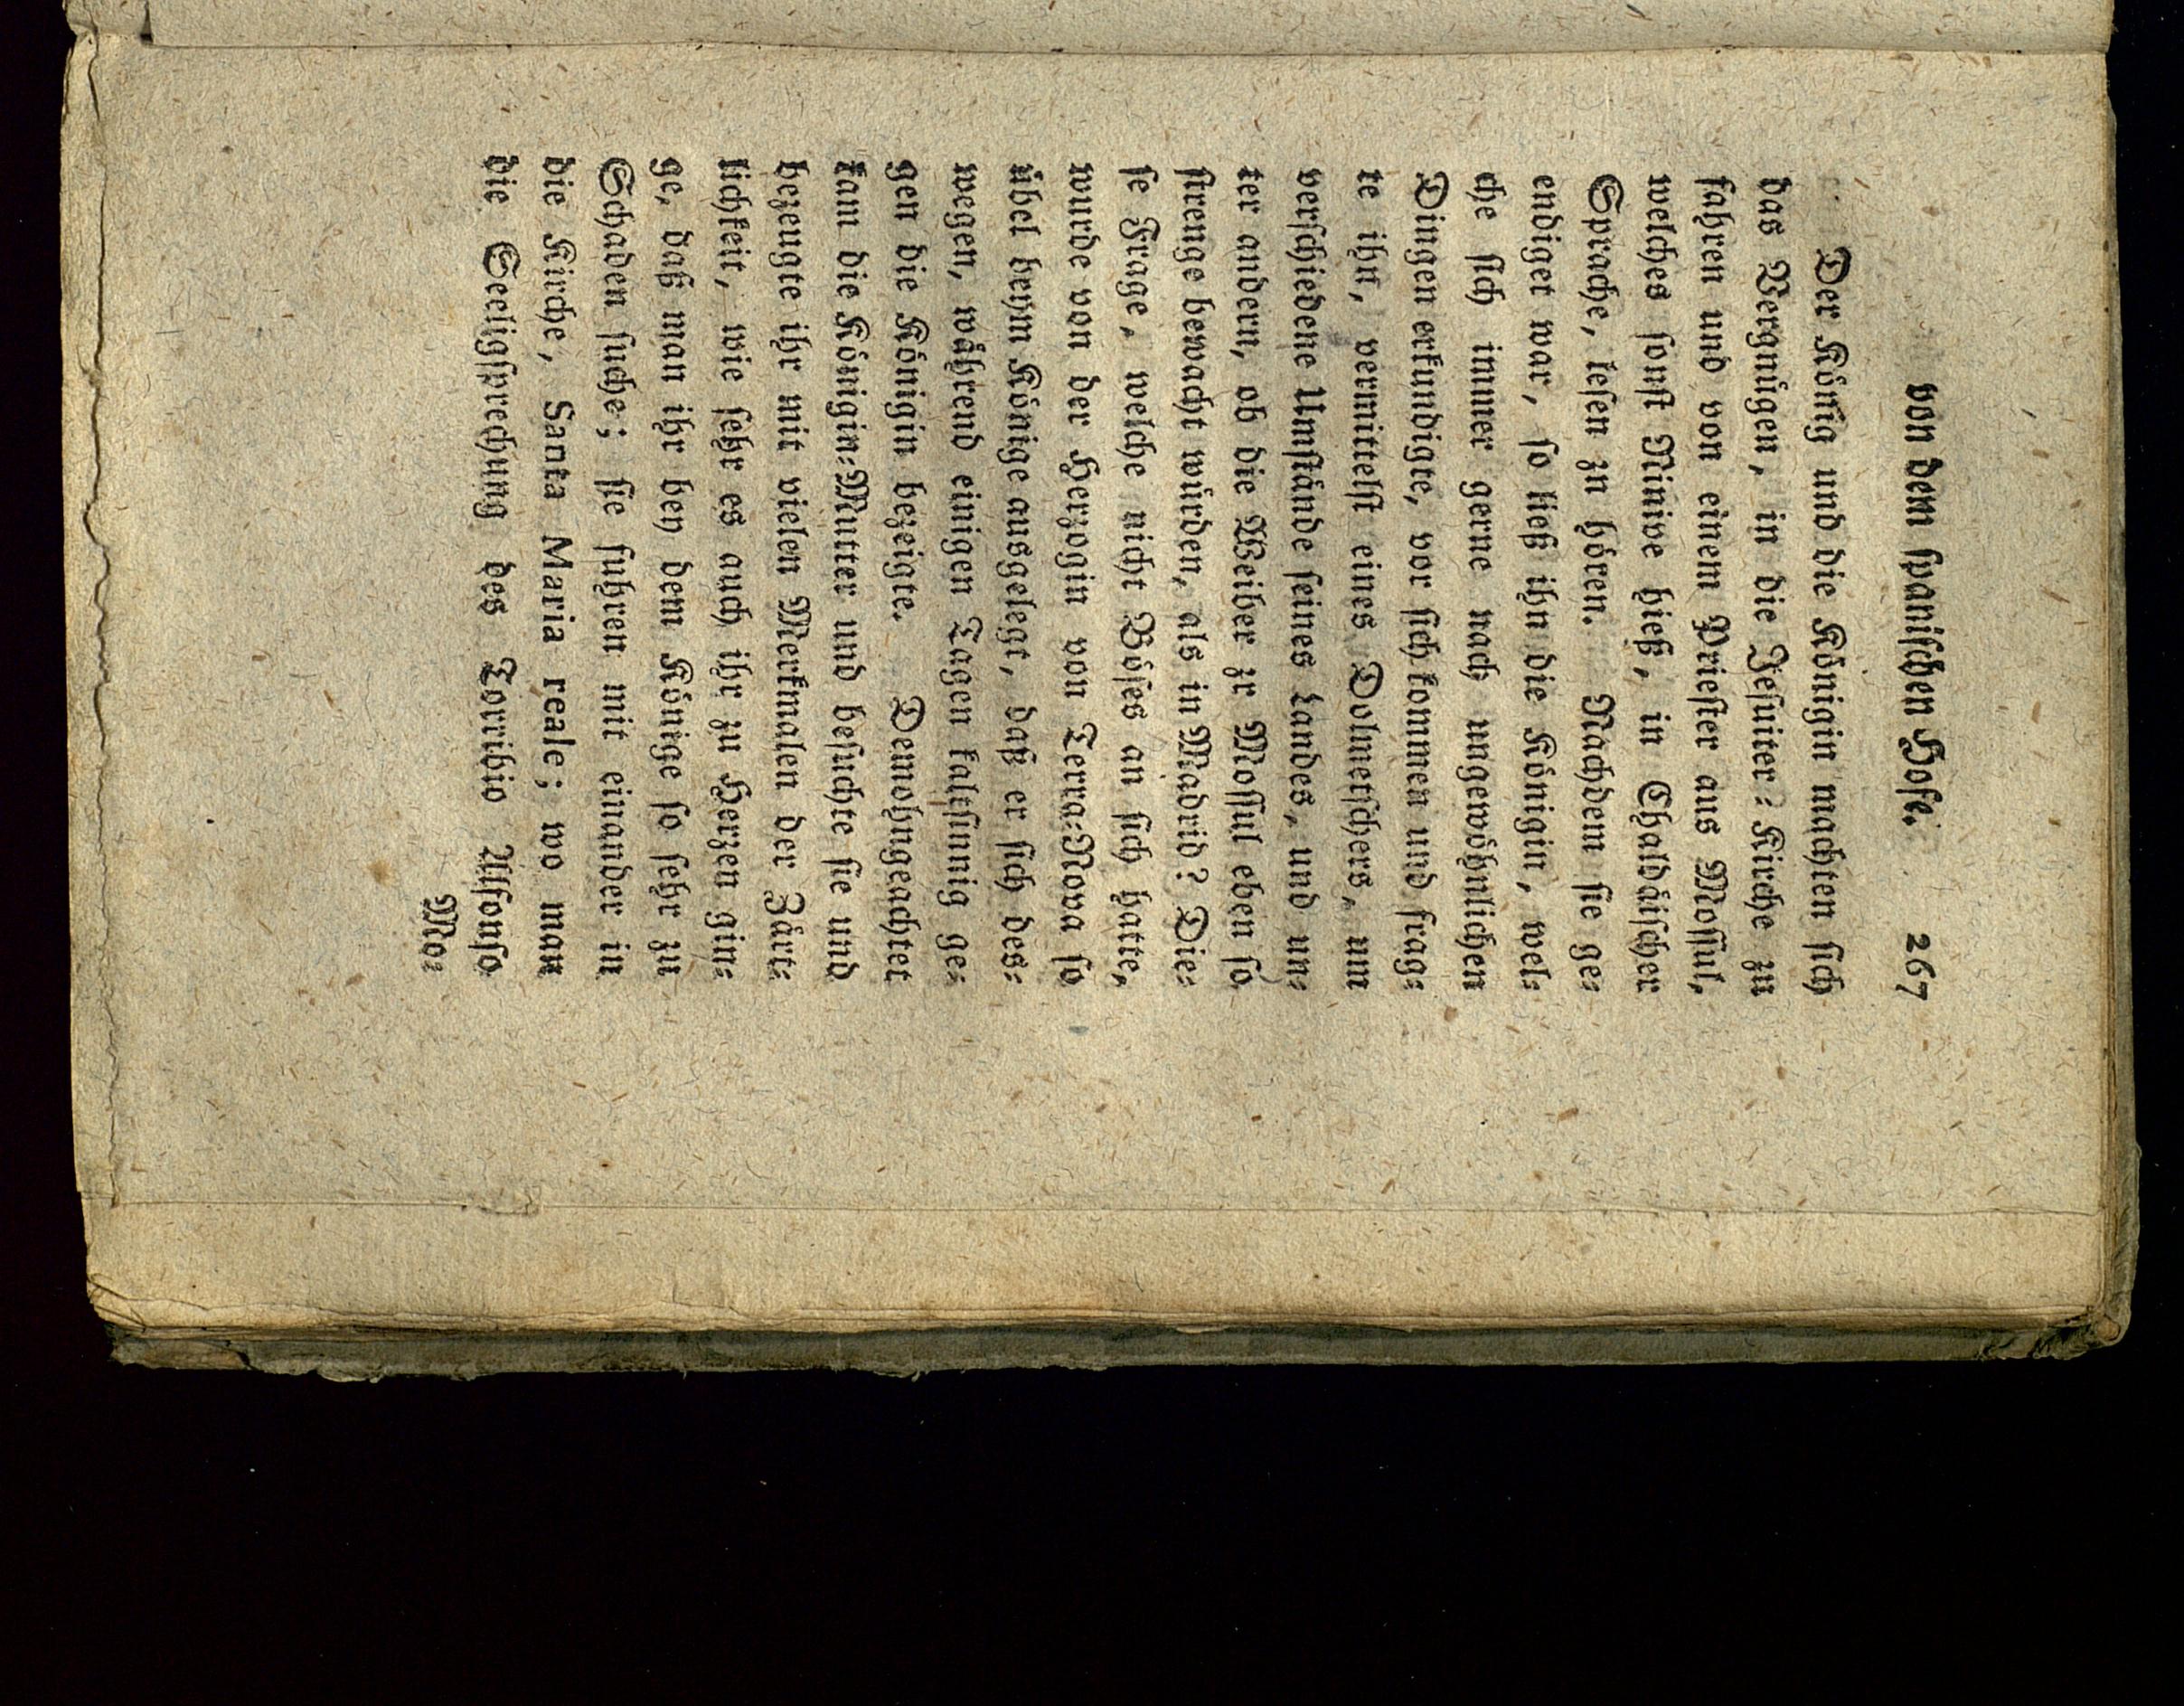 von dem ſpaniſchen Hofe. 267
Der König und die Königin machten ſich
das Vergnügen, in die Jeſuiter-Kirche zu
fahren und von einem Prieſter aus Moſſul,
welches ſonſt Ninive hieß, in Chaldäiſcher
Sprache, leſen zu hören. Nachdem ſie ge-
endiget war, ſo ließ ihn die Königin, wel-
che ſich immer gerne nach ungewöhnlichen
Dingen erkundigte, vor ſich kommen und frag-
te ihn, vermittelſt eines Dolmetſchers, um
verſchiedene Umſtände ſeines Landes, und un-
ter andern, ob die Weiber zu Moſſul eben ſo
ſtrenge bewacht würden, als in Madrid? Die-
ſe Frage, welche nicht Böſes an ſich hatte,
wurde von der Herzogin von Terra-Nova ſo
übel beym Könige ausgelegt, daß er ſich des-
wegen, während einigen Tagen kaltſinnig ge-
gen die Königin bezeigte. Demohngeachtet
kam die Königin-Mutter und beſuchte ſie und
bezeugte ihr mit vielen Merkmalen der Zärt-
lichkeit, wie ſehr es auch ihr zu Herzen gin-
ge, daß man ihr bey dem Könige ſo ſehr zu
Schaden ſuche; ſie fuhren mit einander in
die Kirche, Santa Maria reale; wo man
die Seeligſprechung des Torribio Alfonſo
Mo-